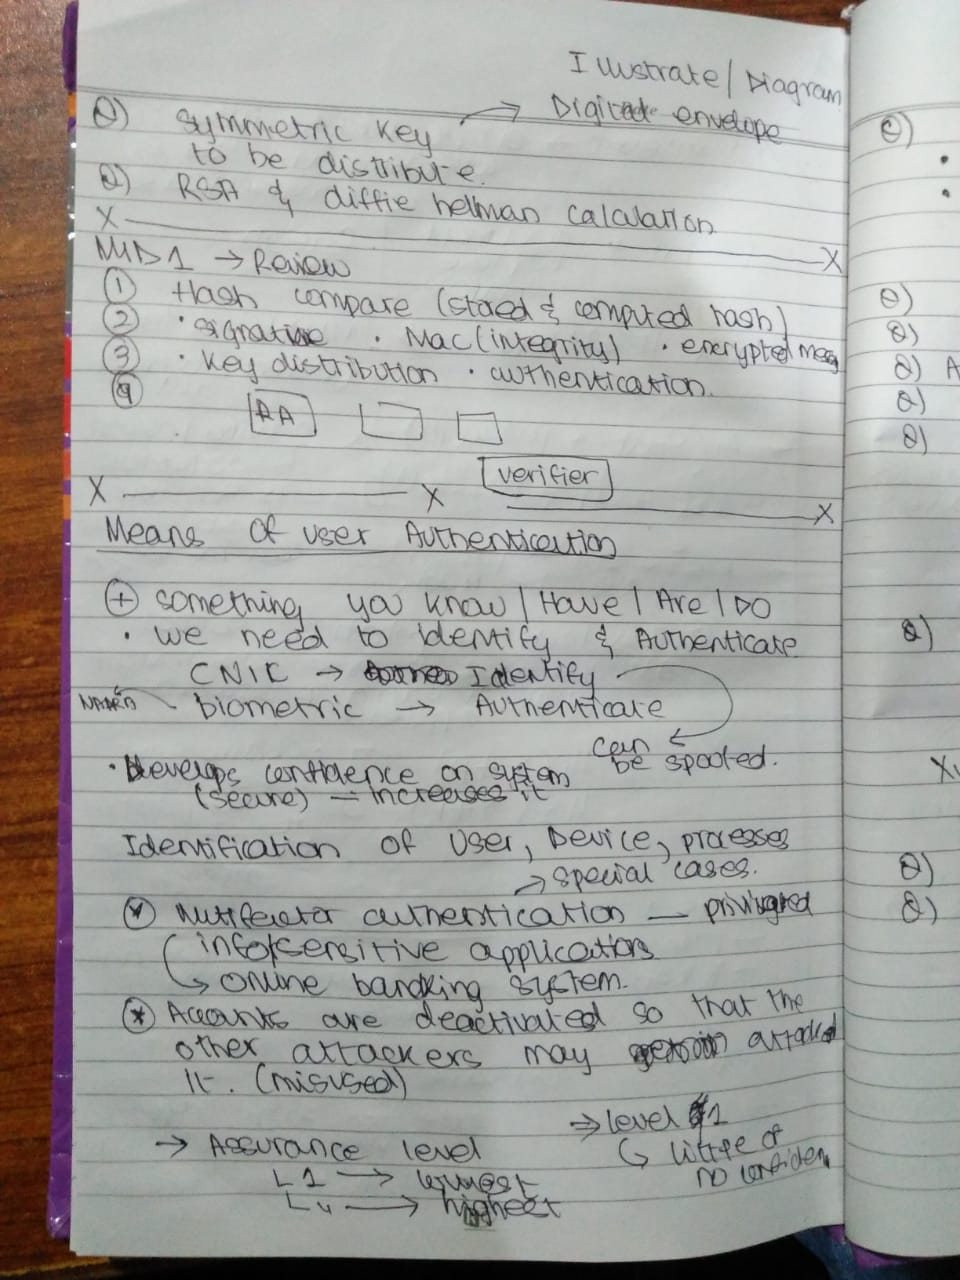 Illustrate / Diagram
Q) Symmetric Key → Digital envelope
to be distribute.
Q) RSA & diffie hellman calculation
X X
MID 1 → Review
① Hash compare (stored & computed hash)
② • signature • Mac (integrity) • encrypted mesg
③ • Key distribution • authentication.
④
RA
verifier
X X X
Means of user Authentication
+ something you know / Have / Are / DO
• we need to identify & Authenticate
CNIC → Identify
NADRA biometric → Authenticate
can be spoofed.
• Develops confidence on system
(secure) — increases it
Identification of User, Device, processes
→ special cases.
* Mutifactor authentication — priviliged
info/sensitive applications
↳ online bandking system.
* Accounts are deactivated so that the
other attackers may attacked
it. (misused)
→ level 1
↳ little or
no confiden
→ Assurance level
L1 → lowest
L4 → highest
Q)
•
•
Q)
Q)
Q) A
Q)
Q)
Q)
Q)
Q)